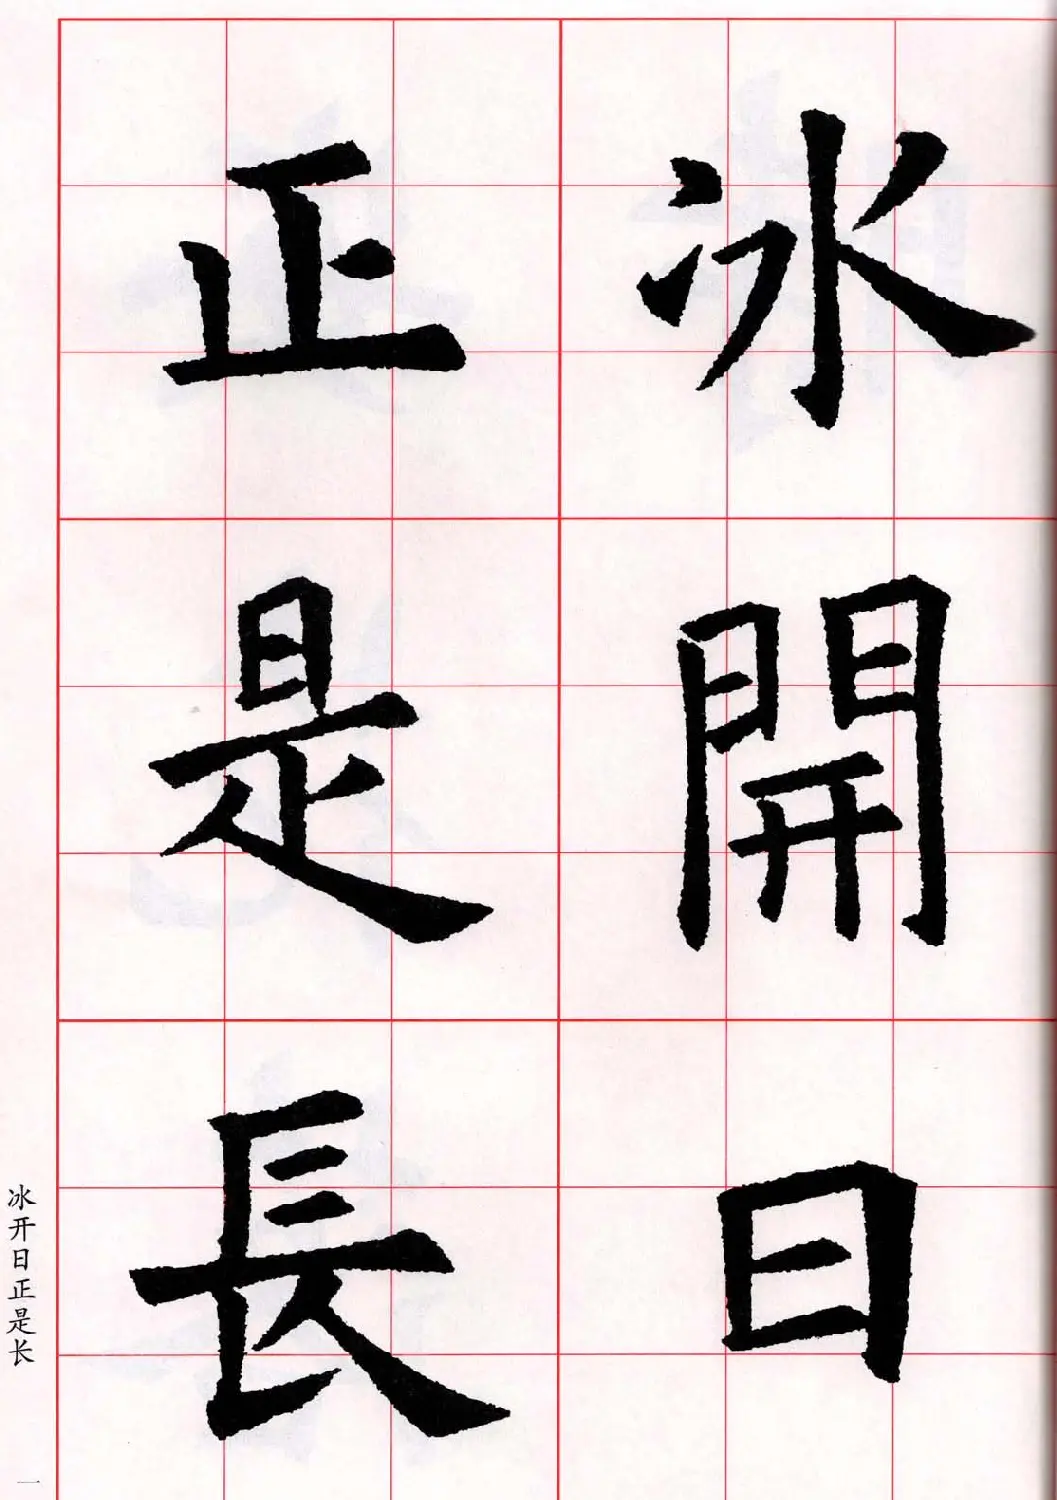 冰開日
正是長
冰开日正是长
一